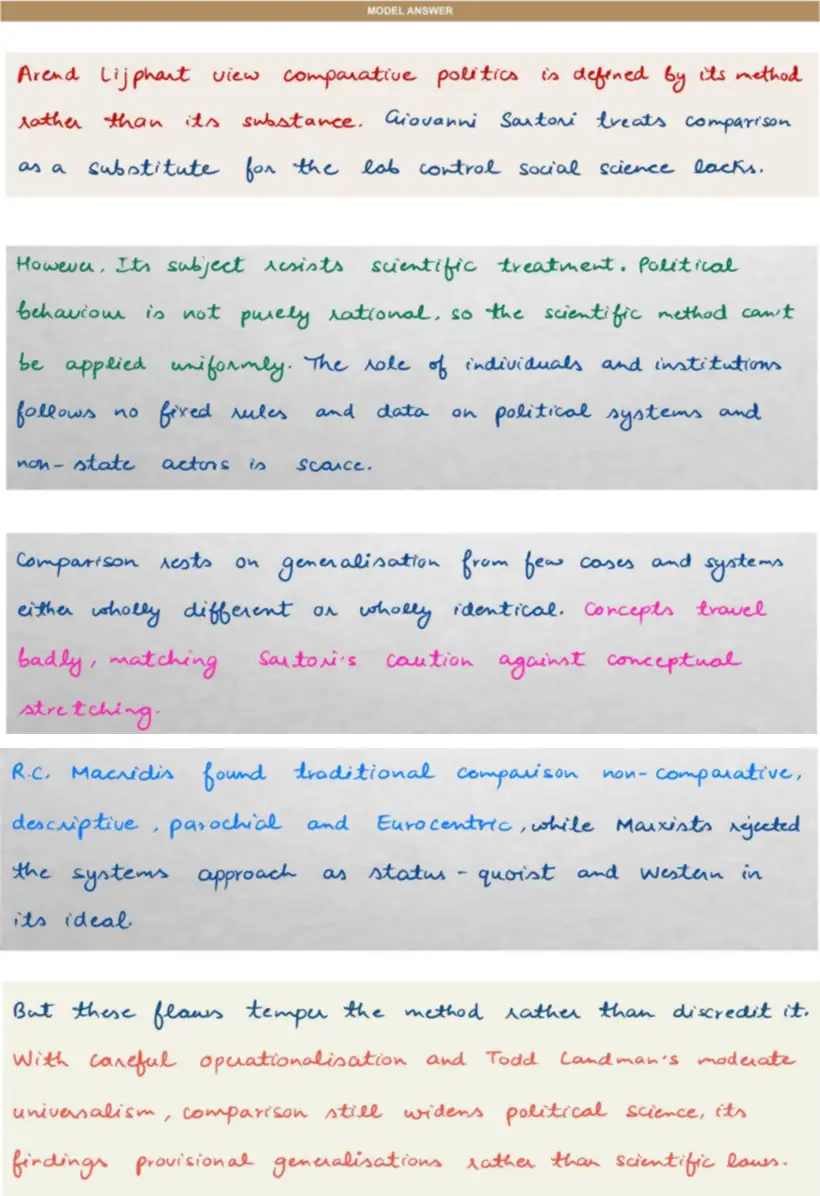 MODEL ANSWER
Arend Lijphart view comparative politics is defined by its method
rather than its substance. Giovanni Sartori treats comparison
as a substitute for the lab control social science lacks.
However, Its subject resists scientific treatment. Political
behaviour is not purely rational, so the scientific method can't
be applied uniformly. The role of individuals and institutions
follows no fixed rules and data on political systems and
non-state actors is scarce.
Comparison rests on generalisation from few cases and systems
either wholly different or wholly identical. Concepts travel
badly, matching Sartori's caution against conceptual
stretching.
R.C. Macridis found traditional comparison non-comparative,
descriptive, parochial and Eurocentric, while Marxists rejected
the systems approach as status-quoist and Western in
its ideal.
But these flaws temper the method rather than discredit it.
With careful operationalisation and Todd Landman's moderate
universalism, comparison still widens political science, its
findings provisional generalisations rather than scientific laws.